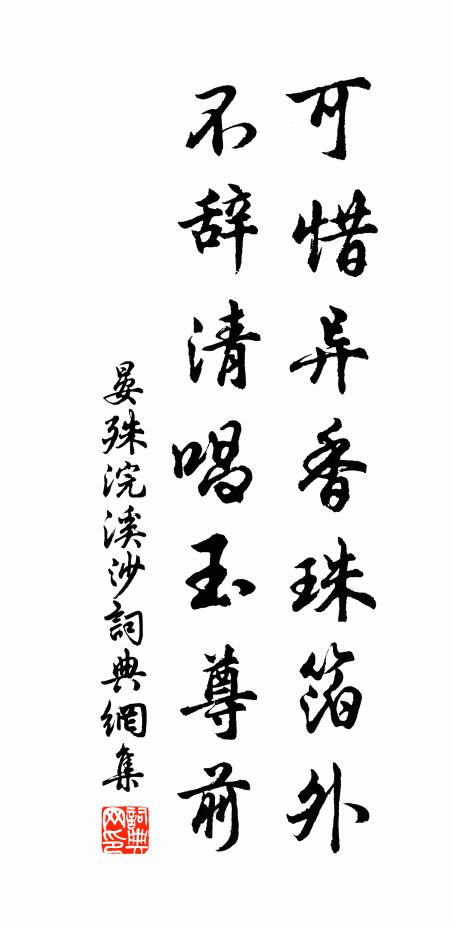 可惜异香珠箔外
不辞清唱玉尊前
晏殊浣溪沙詞典網集
詞典网印